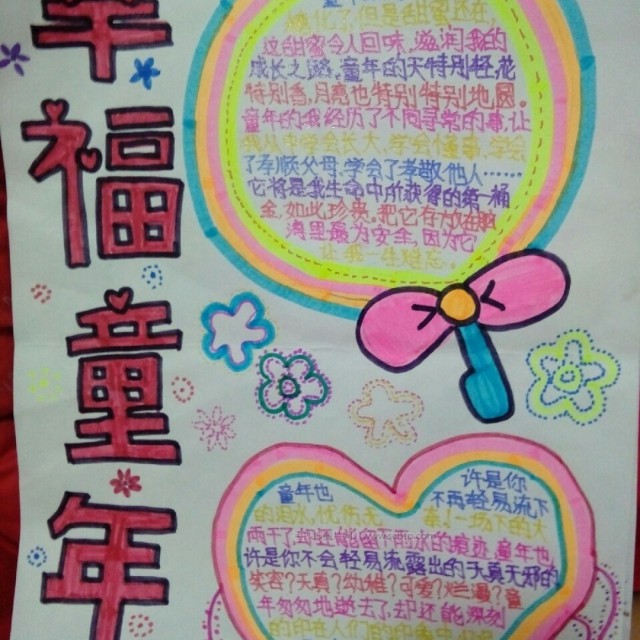 幸福童年
融化了,但是甜蜜还在,
这甜蜜令人回味,滋润我的
成长之路。童年的天特别轻,花
特别香,月亮也特别特别地圆。
童年的我经历了不同寻常的事,让
我从中学会长大,学会懂事,学会
了孝顺父母,学会了孝敬他人……
它将是我生命中所获得的第一桶
金,如此珍贵。把它存放在脑
海里最为安全,因为它
让我一生难忘。
童年也 许是你
不再轻易流下
的泪水,忧伤无 一场下的大
雨干了
许是你不会轻易流露出的天真无邪的
笑容?天真?幼稚?可爱?烂漫?童
年匆匆地逝去了,却还能深刻
的印在人们的